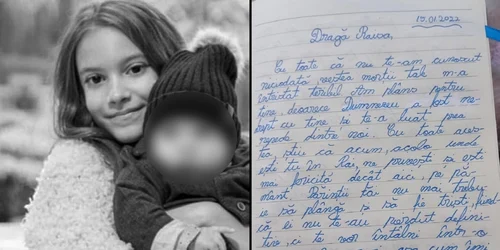 15.01.2022
Dragă Raisa,
Cu toate că nu te-am cunoscut
niciodată, vestea morții tale m-a
întristat teribil. Am plâns pentru
tine, deoarece Dumnezeu a fost ne-
drept cu tine și te-a luat prea
repede dintre noi. Cu toate aces-
tea, știu că acum, acolo unde
ești tu, în Rai, ne privești și ești
mai fericită decât aici, pe pă-
mânt. Părinții tăi nu mai trebu-
ie să plângă și să fie triști, fiind-
că ei nu te-au pierdut defini-
tiv, ci te vor întâlni într-o